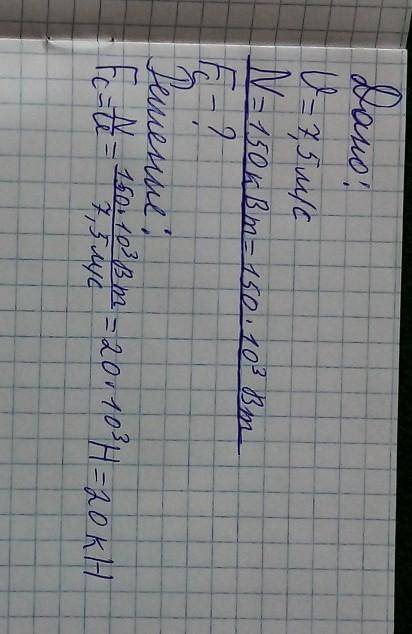 Дано:
υ = 7,5 м/с
N = 150 кВт = 150 · 10³ Вт
Fс - ?
Решение:
Fс = N/υ = 150 · 10³ Вт / 7,5 м/с = 20 · 10³ Н = 20 кН